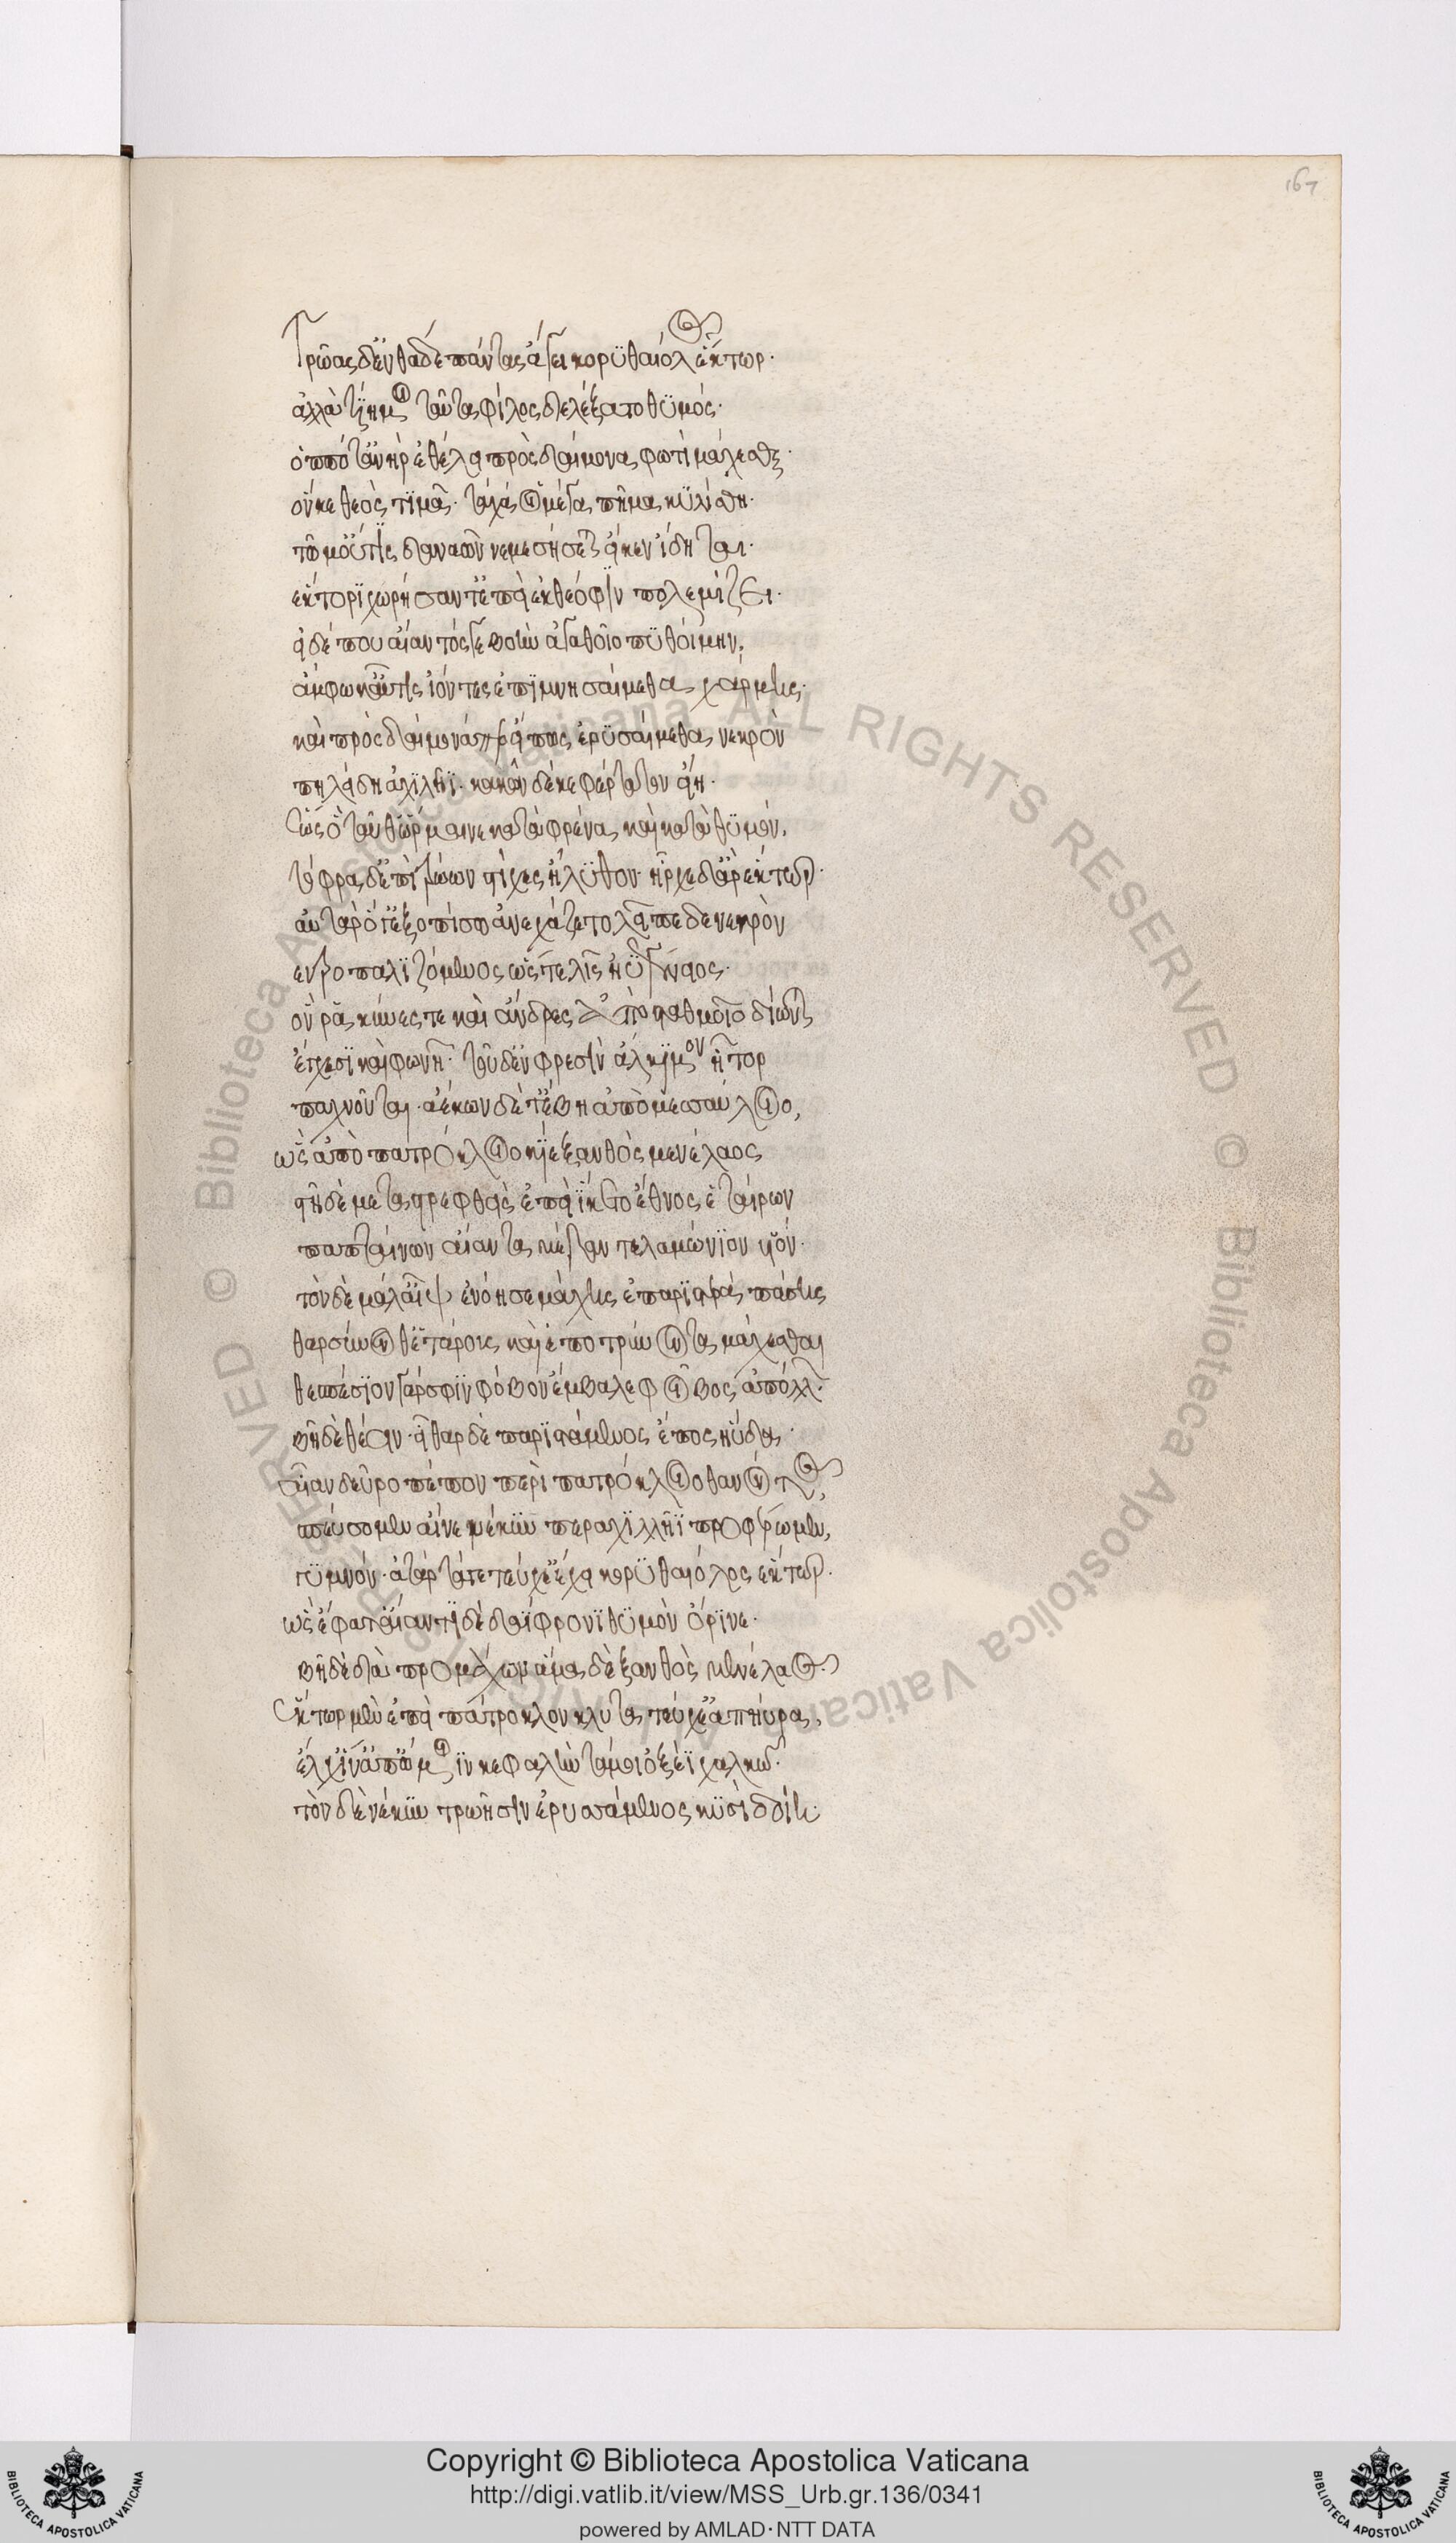 167
Τρῶας δ' ἔνθαδε πάντας ἄγει κορϋθαίολος ἕκτωρ·
ἀλλὰ τΐη μοι ταῦτα φίλος διελέξατο θϋμός·
ὁππότ' ἀνὴρ ἐθέλει πρὸς δαίμονα φωτὶ μάχεσθαι·
οὕκε θεὸς τϊμᾶ· τάχά οἱ μέγα πῆμα κϋλίσθη·
τῶ μ' οὔτις δαναῶν νεμεσήσεται ὅς κεν ἴδηται·
ἕκτορϊ χωρήσαντ' ἐπεὶ ἐκ θεόφϊν πολεμίζει·
εἰ δέ που αἴαντός γε βοὴν ἀγαθοῖο πϋθοίμην,
ἄμφω κ' αὖτις ἰόντες ἐπϊμνησαίμεθα χάρμης·
καὶ πρὸς δαίμονά περ εἴ πως ἐρϋσαίμεθα νεκρὸν
πηλείδη ἀχϊλῆϊ· κακῶν δέ κε φέρτατον εἴη·
Ἕως ὃ ταῦθ' ὥρμαινε κατὰ φρένα καὶ κατὰ θϋμόν,
τόφρα δ' ἐπὶ τρώων στίχες ἤλϋθον· ἦρχε δ' ἄρ' ἕκτωρ·
αὐτὰρ ὅγ' ἐξοπίσω ἀνεχάζετο λεῖπε δὲ νεκρὸν
ἐντροπαλϊζόμενος ὥς τε λῒς ἠϋγένειος·
ὅν ῥα κύνες τε καὶ ἄνδρες ἀπὸ σταθμοῖο δίωνται
ἔγχεσϊ καὶ φωνῆ· τοῦ δ' ἐν φρεσὶν ἄλκϊμον ἦτορ
παχνοῦται· ἀέκων δέ τ' ἔβη ἀπὸ μεσσαύλοιο,
ὣς ἀπὸ πατρόκλοιο κΐε ξανθὸς μενέλαος
στῆ δὲ μεταστρεφθεὶς ἐπεὶ ἵκετο ἔθνος ἑταίρων
παπταίνων αἴαντα μέγαν τελαμώνϊον υἱόν·
τὸν δὲ μάλ' αἶψ' ἐνόησε μάχης ἐπ' ἀρϊστερὰ πάσης
θαρσύνονθ' ἑτάροις καὶ ἐποτρύνοντα μάχεσθαι
θεσπέσϊον γάρ σφϊν φόβον ἔμβαλε φοῖβος ἀπόλλων·
βῆ δὲ θέειν· εἶθαρ δὲ παρϊστάμενος ἔπος ηὔδα·
αἶαν δεῦρο πέπον περὶ πατρόκλοιο θανόντος,
σπεύσομεν αἴ κε νέκϋν περ ἀχϊλλῆϊ προφέρωμεν,
γϋμνόν· ἀτὰρ τά γε τεύχε' ἔχει κορϋθαιόλος ἕκτωρ·
ὣς ἔφατ' αἴαντϊ δὲ δαΐφρονϊ θϋμὸν ὄρϊνε·
βῆ δὲ διὰ προμάχων ἅμα δὲ ξανθὸς μενέλαος·
Ἕκτωρ μὲν ἐπεὶ πάτροκλον κλυτὰ τεύχε' ἀπηύρα,
ἕλχ' ἵν' ἀπ' ὤμοιϊν κεφαλὴν τάμοι ὀξέϊ χαλκῶ·
τὸν δὲ νέκϋν τρωῆσϊν ἐρυσσάμενος κϋσὶ δοίη·
Copyright © Biblioteca Apostolica Vaticana
http://digi.vatlib.it/view/MSS_Urb.gr.136/0341
powered by AMLAD·NTT DATA